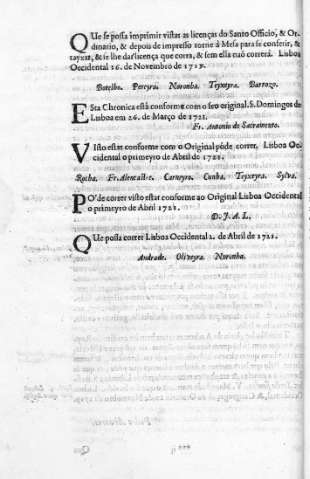 QUe se possa imprimir vistas as licenças do Santo Officio, & Or-
dinario, & depois de impresso torne á Mesa para se conferir, &
taxar, & se lhe dar licença que corra, & sem ella naõ correrá. Lisboa
Occidental 16. de Novembro de 1719.
Botelho. Pereyra. Noronha. Teyxeyra. Barrozo.
ESta Chronica està conforme com o seo original. S. Domingos de
Lisboa em 26. de Março de 1721.
Fr. Antonio do Sacramento.
VIsto estar conforme com o Original póde correr. Lisboa Oc-
cidental o primeyro de Abril de 1721.
Rocha. Fr. Alencastre. Carneyro. Cunha. Teyxeyra. Sylva.
PO'de correr visto estar conforme ao Original Lisboa Occidental
o primeyro de Abril 1721.
D. J. A. L.
QUe possa correr Lisboa Occidental 2. de Abril de 1721.
Andrade. Oliveyra. Noronha.